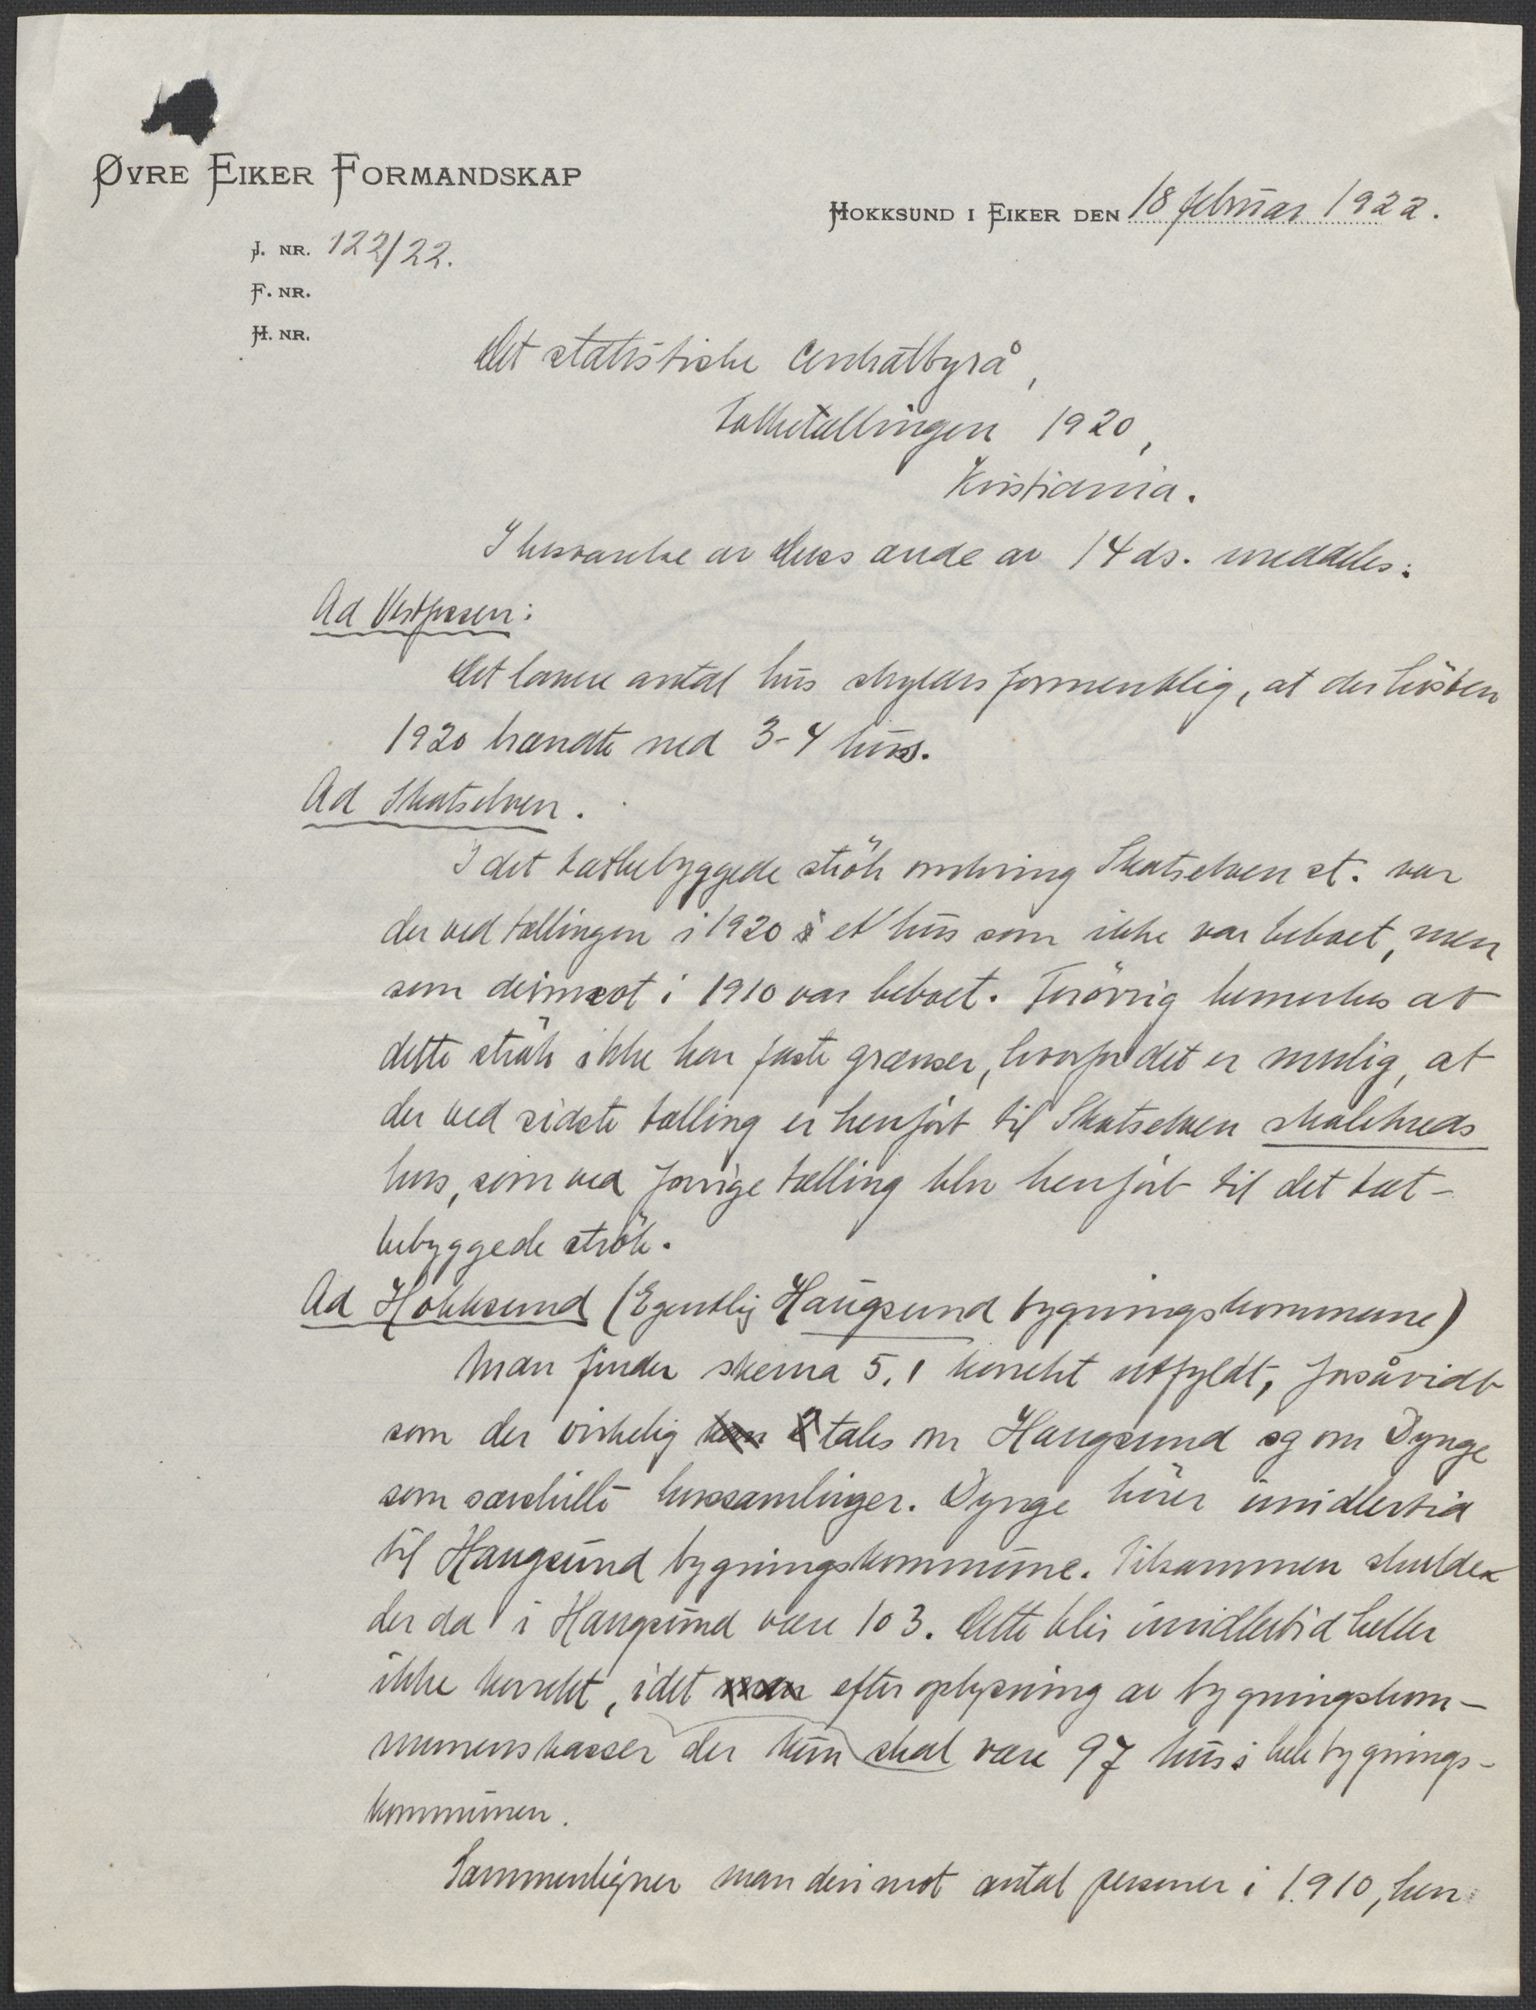 ØVRE EIKER FORMANDSKAP
HOKKSUND I EIKER DEN 18 februar 1922.
J. NR. 122/22.
F. NR.
H. NR.
Det statistiske Centralbyrå,
Folketællingen 1920,
Kristiania.
I besvarelse av Deres ærede av 14 ds. meddeles:
Ad Vestfossen:
Det lavere antal hus skyldes formentlig, at der høsten
1920 brændte ned 3-4 hus.
Ad Skotselven.
I det tætbebyggede strök omkring Skotselven st. var
der ved tællingen i 1920 et hus som ikke var beboet, men
som derimot i 1910 var beboet. Forövrig bemerkes at
dette strök ikke har faste grænser, hvorfor det er mulig, at
der ved sidste tælling er henført til Skotselven skolekreds
hus, som ved forrige tælling blev henført til det tæt-
bebyggede strök.
Ad Hokksund (Egentlig Haugsund bygningskommune)
Man finder skema 5,1 korrekt utfyldt, forsåvidt
som der virkelig tales om Haugsund og om Dynge
som særskilte hussamlinger. Dynge hörer imidlertid
til Haugsund bygningskommune. Tilsammen skulde
der da i Haugsund være 103. Dette blir imidlertid heller
ikke korrekt, idet efter oplysning av bygningskom-
munens kasser der kun skal være 97 hus i hele bygnings-
kommunen.
Sammenligner man derimot antal personer i 1910, hen